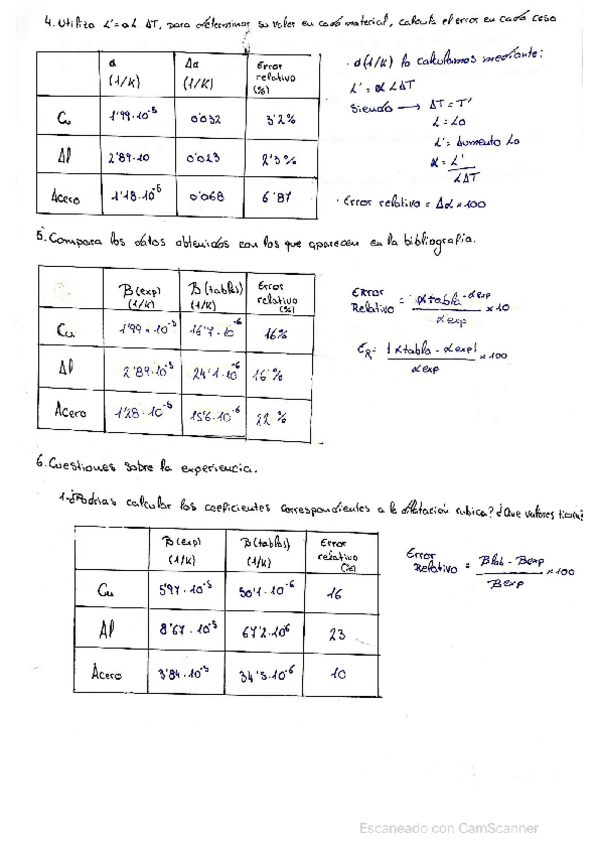 4. Utiliza L'=αL ΔT, para determinar su valor en cada material, calcula el error en cada caso
α (1/K) Δα (1/K) Error relativo (%)
Cu 1'99·10⁻⁵ 0'032 3'2%
Al 2'89·10 0'023 2'3%
Acero 1'18·10⁻⁵ 0'068 6'87
· α(1/K) lo calculamos mediante:
L' = αLΔT
Siendo → ΔT = T'
L = L₀
L' = Aumento L₀
α = L' / LΔT
· Error relativo = Δα × 100
5. Compara los datos obtenidos con los que aparecen en la bibliografía.
B(exp) (1/K) B(tablas) (1/K) Error relativo (%)
Cu 1'99·10⁻⁵ 16'7·10⁻⁶ 16%
Al 2'89·10⁻⁵ 24'1·10⁻⁶ 16%
Acero 1'28·10⁻⁵ 15'6·10⁻⁶ 22%
Error Relativo = αtabla - αexp / αexp × 10
εR = |αtabla - αexp| / αexp × 100
6. Cuestiones sobre la experiencia.
1-¿Podrías calcular los coeficientes correspondientes a la dilatación cubica? ¿Que valores tienen?
B(exp) (1/K) B(tablas) (1/K) Error relativo (%)
Cu 5'97·10⁻⁵ 50'1·10⁻⁶ 16
Al 8'67·10⁻⁵ 67'2·10⁶ 23
Acero 3'84·10⁻⁵ 34'5·10⁻⁶ 10
Error Relativo = Btab - Bexp / Bexp × 100
Escaneado con CamScanner